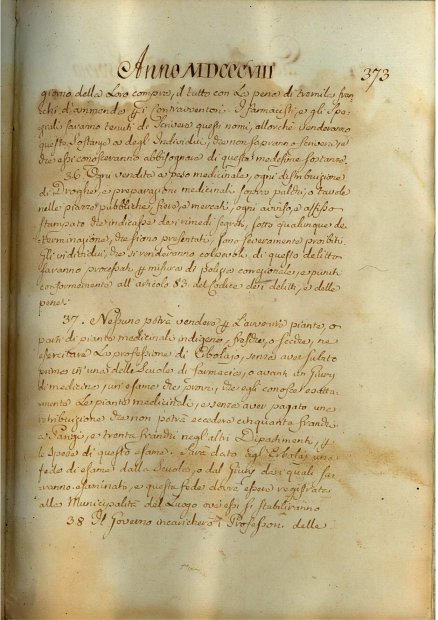 Anno MDCCCVIII 373
giorno della Loro compra, il tutto con La pena di tremila fran-
chi d'ammenda pei contravventori. I farmacisti, e gli Spe-
ziali saranno tenuti di scrivere questi nomi, allorchè venderanno
queste sostanze a degl'Individui, che non sapranno scrivere, ne
che essi conosceranno abbisognare di queste medesime sostanze.
36. Ogni vendita a peso medicinale, ogni distribuzione
di Droghe, e preparazioni medicinali sopra palchi, o tavole
nelle piazze pubbliche, fiere, e mercati, ogni avviso, e affisso
stampato che indicasse dei rimedi segreti, sotto qualunque de-
terminazione, che siono presentati, sono severamente proibiti.
Gli individui, che si renderanno colpevoli di questo delitto
saranno processati per misura di Polizia correzionale, e puniti
conformemente all'articolo 83. del Codice dei delitti, e delle
pene.
37. Nessuno potrà vendere per L'avvenire piante, o
parti di piante medicinali indigene, fresche, o secche, ne
esercitare La professione di Erbolajo, senza aver subito
primo in una delle Scuole di farmacia, o avanti un Giury
di medicina, un'esame che provi, che egli conosce esatta-
mente Le piante medicinali, e senza aver pagato una
retribuzione che non potrà eccedere cinquanta franchi
a Parigi, e trenta franchi negl'altri Dipartimenti, per
le spese di questo esame. Sarà dato agl'Erbolai una
fede di esame dalla Scuola, o dal Giury dei quali sa-
ranno esaminati, e questa fede dovrà essere registrata
alla Municipalità del Luogo ove essi si stabiliranno
38 Il Governo incaricherà i Professori delle